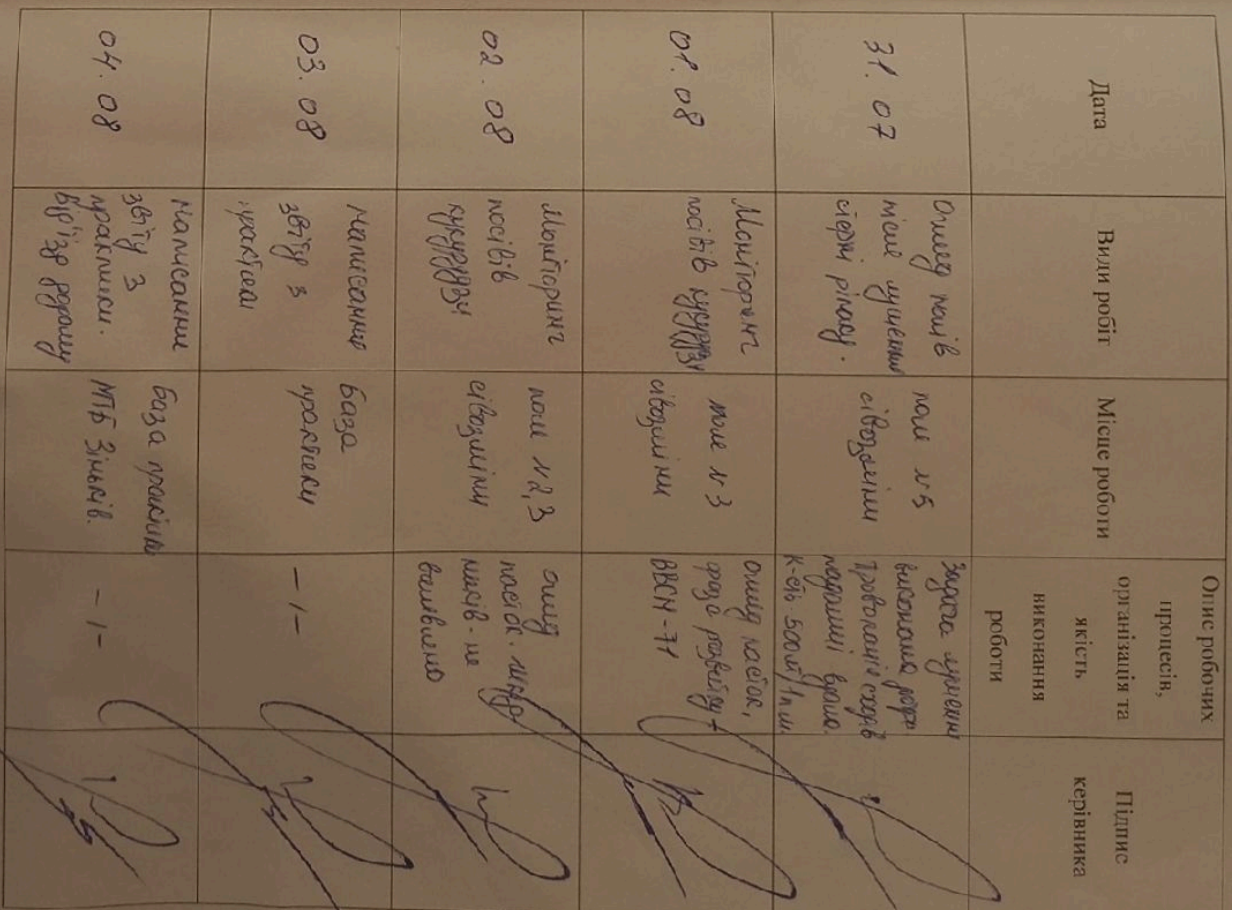 Дата
Види робіт
Місце роботи
Опис робочих
процесів,
організація та
якість
виконання
роботи
Підпис
керівника
31.07
Огляд полів
після лущення
стерні ріпаку.
поле №5
сівозміни
Задача лущення
виконана добре
сходів
падалиці
к-сть 500 м²/1 га
01.08
Моніторинг
посівів кукурудзи
поле №3
сівозміни
огляд пасток,
фаза розвитку
ВВСН-71
02.08
Моніторинг
посівів
кукурудзи
поле №2,3
сівозміни
огляд
пасток.
не
виявлено
03.08
Написання
звіту з
практики
База
практики
-//-
04.08
Написання
звіту з
практики.
Від'їзд додому
База практики
МТБ Зіньків.
-//-